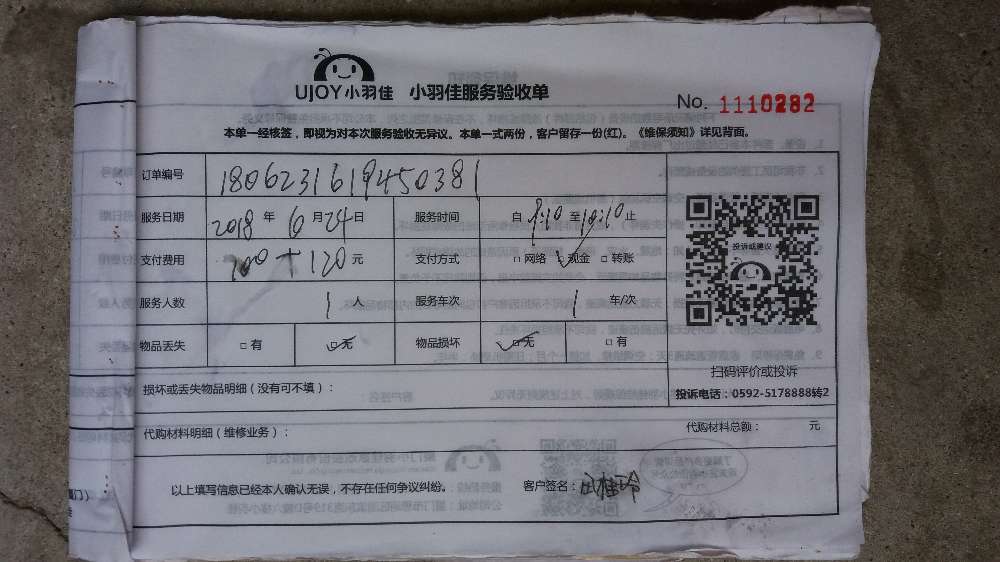 UJOY小羽佳 小羽佳服务验收单
No. 1110282
本单一经核签，即视为对本次服务验收无异议。本单一式两份，客户留存一份(红)。《维保须知》详见背面。
订单编号 1806231619450381
服务日期 2018 年 6 月 24 日 服务时间 自 9:10 至 10:10 止
支付费用 100+120 元 支付方式 □ 网络 ☑ 现金 □ 转账
投诉或建议
服务人数 1 人 服务车次 1 车/次
物品丢失 □ 有 ☑ 无 物品损坏 ☑ 无 □ 有
扫码评价或投诉
损坏或丢失物品明细（没有可不填）：
投诉电话：0592-5178888转2
代购材料明细（维修业务）： 代购材料总额： 元
以上填写信息已经本人确认无误，不存在任何争议纠纷。 客户签名：